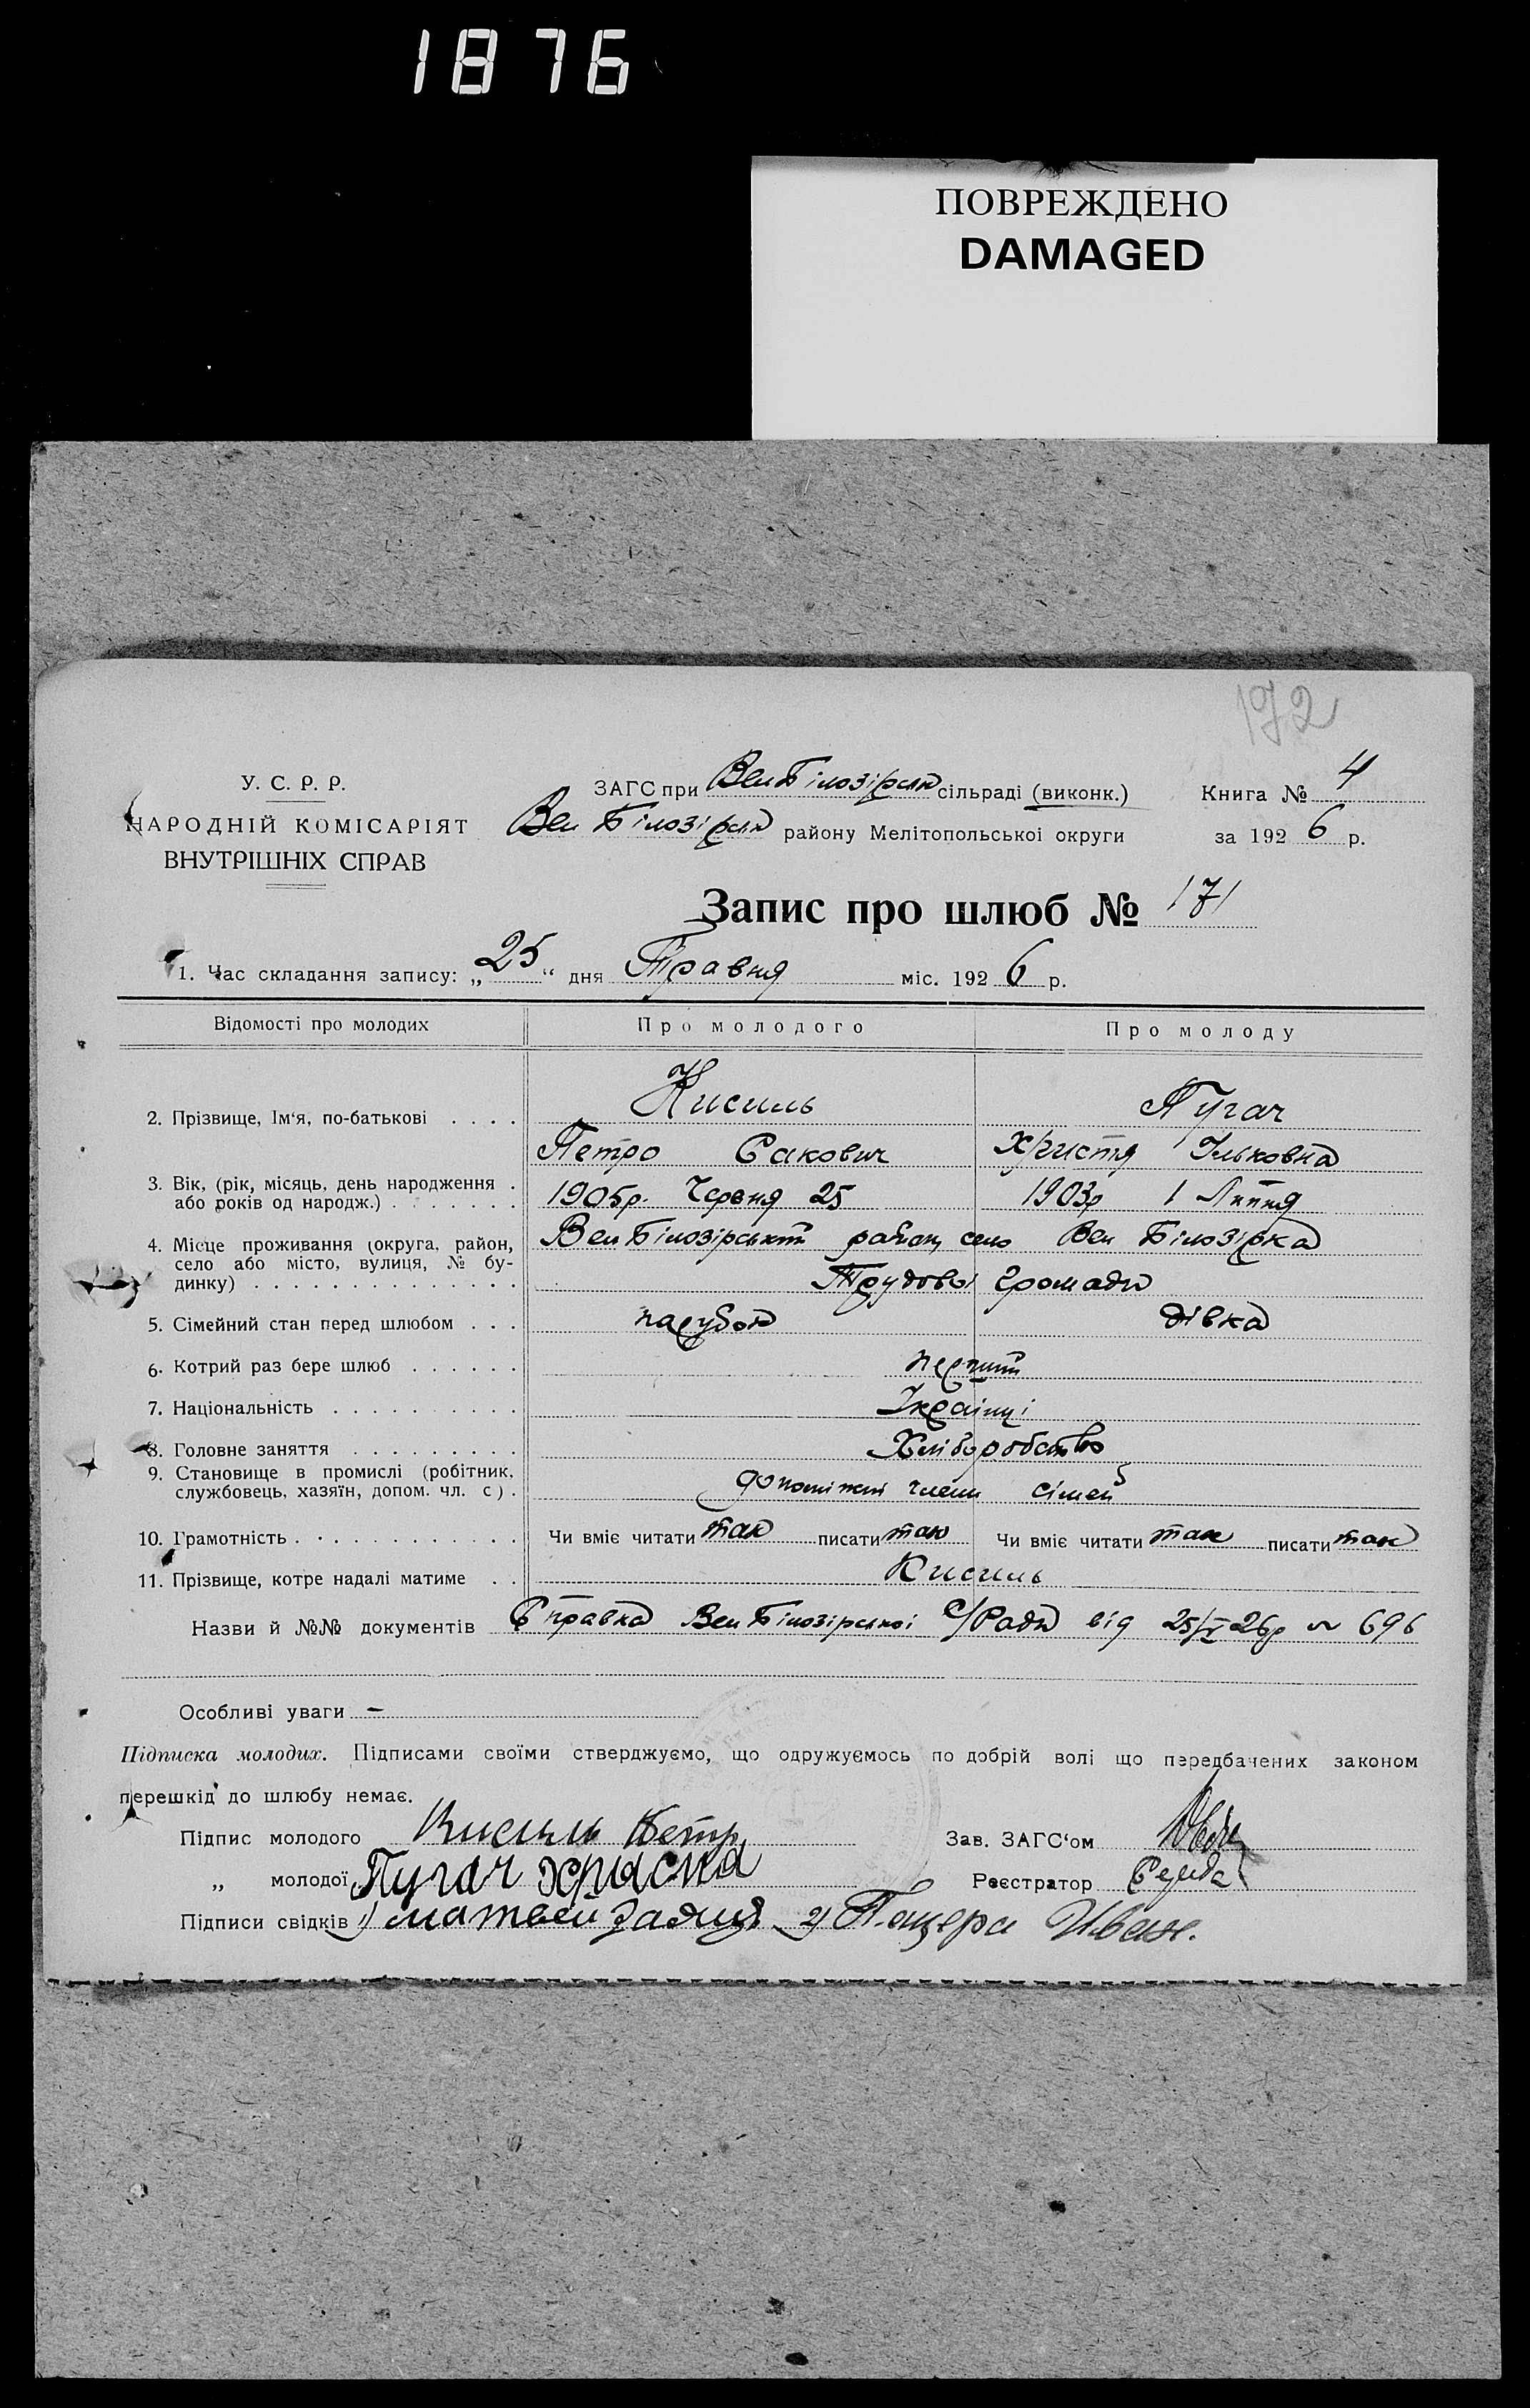 1876
ПОВРЕЖДЕНО
DAMAGED
172
У. С. Р. Р.
НАРОДНІЙ КОМІСАРІЯТ
ВНУТРІШНІХ СПРАВ
ЗАГС при Вел Білозірськ сільраді (виконк.)
Вел Білозірськ району Мелітопольської округи
Книга № 4
за 1926 р.
Запис про шлюб № 171
1. Час складання запису: „25“ дня Травня міс. 1926 р.
Відомості про молодих Про молодого Про молоду
2. Прізвище, Ім‘я, по-батькові . . . . Кисиль Пугач
Петро Сакович Христя Ільковна
3. Вік, (рік, місяць, день народження . або років од народж.) . . . . . . . 1905р. Червня 25 1903р 1 Липня
4. Місце проживання (округа, район, село або місто, вулиця, № будинку) . . . . . . . . . . . . . Вел Білозірський район село Вел Білозірка
Трудової громади
5. Сімейний стан перед шлюбом . . . парубок дівка
6. Котрий раз бере шлюб . . . . . . перший
7. Національність . . . . . . . . . . Українці
8. Головне заняття . . . . . . . . . Хліборобство
9. Становище в промислі (робітник, службовець, хазяїн, допом. чл. с) . допоміжні члени сімей
10. Грамотність . . . . . . . . . . . . Чи вміє читати так писати так Чи вміє читати так писати так
11. Прізвище, котре надалі матиме . . Кисиль
Назви й №№ документів Справка Вел Білозірської С/Ради від 25/V 26р № 696
Особливі уваги —
Підписка молодих. Підписами своїми стверджуємо, що одружуємось по добрій волі що передбачених законом
перешкід до шлюбу немає.
Підпис молодого Кисиль Петр
Зав. ЗАГС‘ом
„ молодої Пугач Хрыска
Реєстратор Середа
Підписи свідків 1) Матвей Заяцъ 2) Пащера Иван.